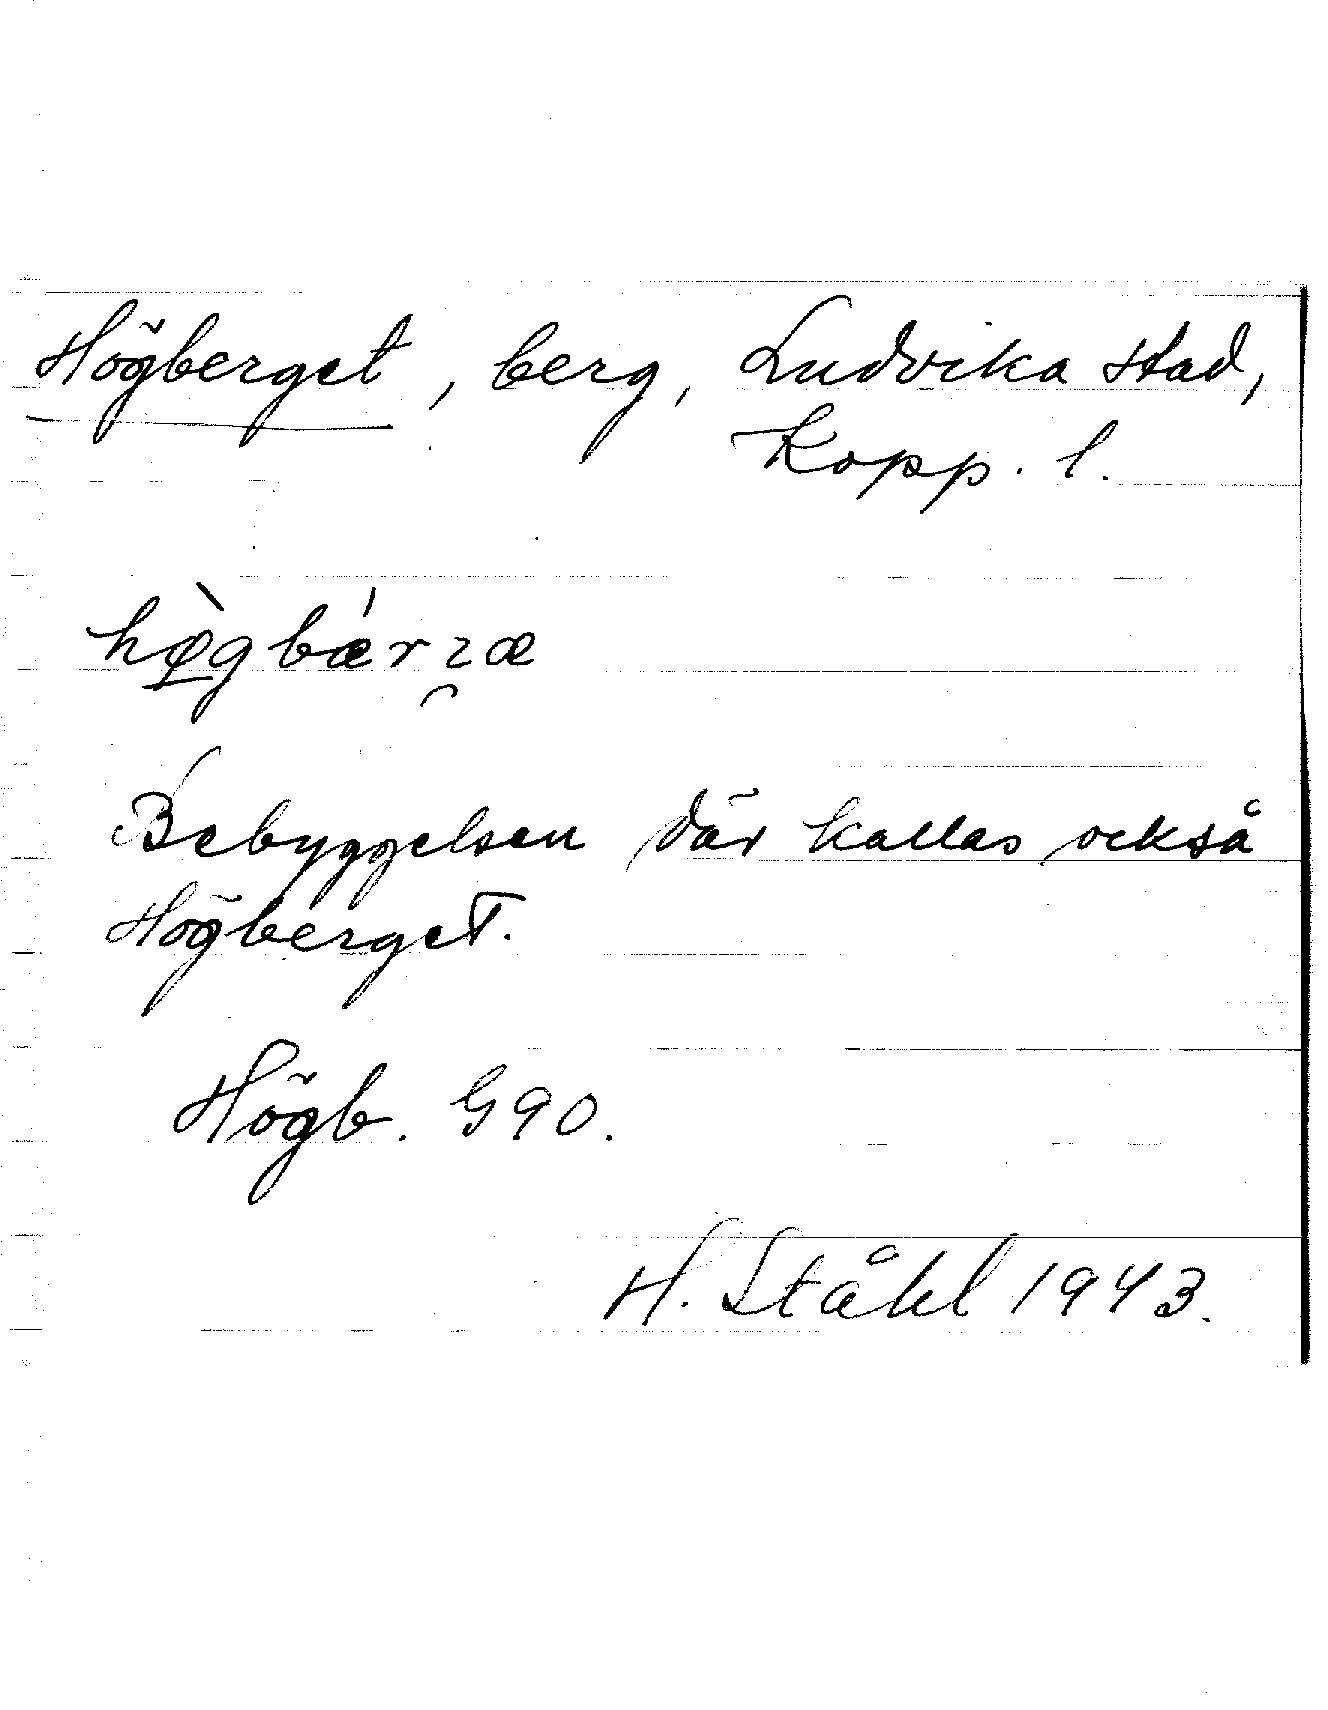 Högberget, berg, Ludvika stad,
Kopp. l.
hø̀gbǽrɪæ
Bebyggelsen där kallas också
Högberget.
Högb. G90.
H. Ståhl 1943.